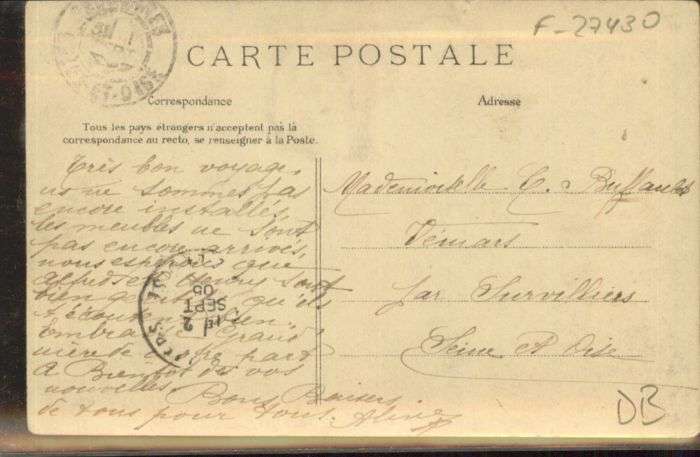 F-27430
CARTE POSTALE
Correspondance
Adresse
Tous les pays étrangers n'acceptent pas la
correspondance au recto, se renseigner à la Poste.
Très bon voyage,
ns ne sommes pas
encore installés,
les meubles ne sont
pas encore arrivés,
nous espérons que
Alfred et Henry sont
bien
bien,
Embrassez Grand
mère de notre part
A Bientôt de vos
nouvelles. Bons Baisers
de tous pour tous. Aline
Mademoiselle C.
Vémars
par Survilliers
Seine et Oise
ET-OISE
2
SEPT
05
DB